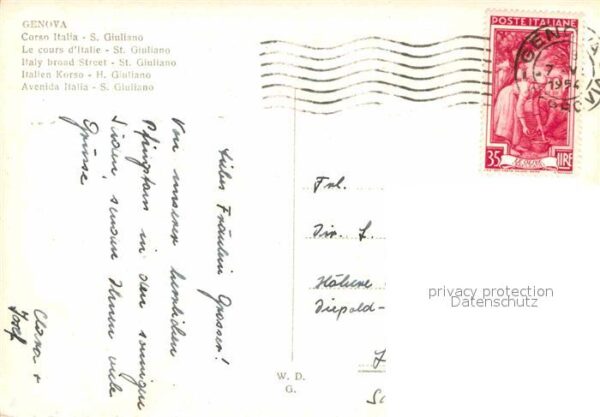 GENOVA
Corso Italia - S. Giuliano
Le cours d'Italie - St. Giuliano
Italy broad Street - St. Giuliano
Italien Korso - H. Giuliano
Avenida Italia - S. Giuliano
POSTE ITALIANE
GENOVA
7
1954
35 LIRE
Liebes Fräulein Grosser!
Von unserer herrlichen
Pfingstfahrt in den sonnigen
Süden, senden Ihnen viele
Grüsse
Clara +
Josef
Frl.
Dir. L.
Höhere
Diepold-
W. D.
G.
privacy protection
Datenschutz